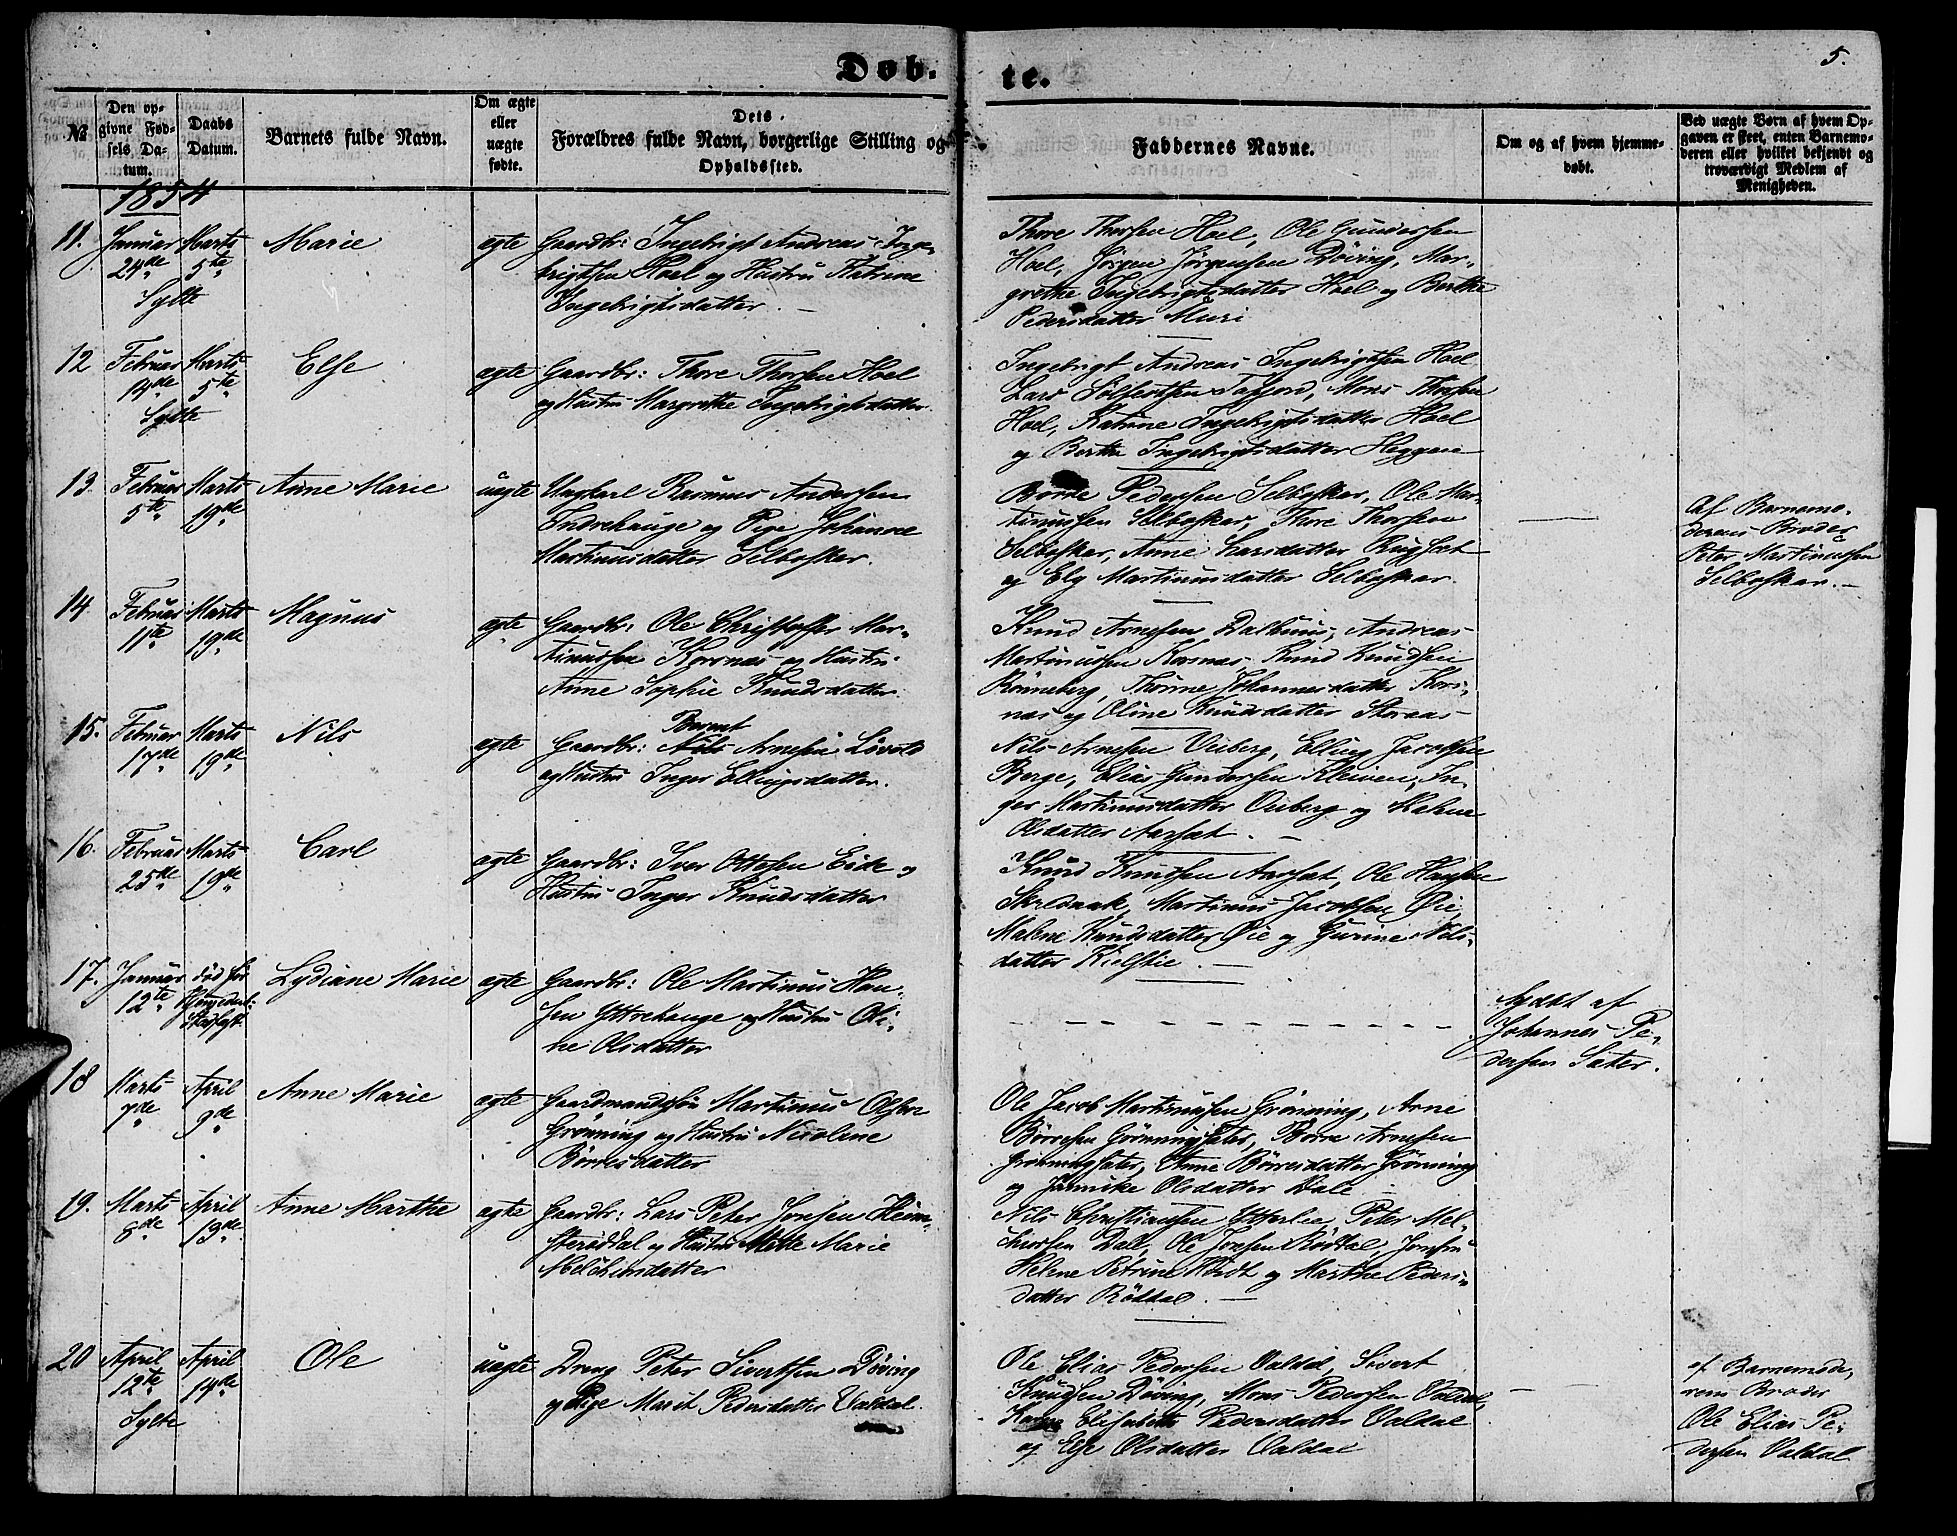 Døb.
te.
5.
№
Den op-
givne Fød-
sels Da-
tum.
Daabs
Datum.
Barnets fulde Navn.
Om ægte
eller
uægte
fødte.
Dets
Forældres fulde Navn, borgerlige Stilling og
Opholdssted.
Faddernes Navne.
Om og af hvem hjemme-
døbt.
Ved uægte Børn af hvem Op-
gaven er skeet, enten Barnemo-
deren eller hvilket bekjendt og
troværdigt Medlem af
Menigheden.
1854
11. Januar 24de Sylte
Marts 5te
Marie
ægte
Gaardbr: Ingebrigt Andreas Inge-
brigtsen Hoel og Hustru Katrine
Ingebrigtsdatter. —
Thore Thorsen Hoel, Ole Gundersen
Hoel, Jørgen Jørgensen Døving, Mar-
grethe Ingebrigtsdatter Hoel og Berthe
Pedersdatter Muri
12 Februar 14de Sylte
Marts 5te
Else
ægte
Gaardbr: Thore Thorsen Hoel
og Hustru Margrethe Ingebrigtsdatter
Ingebrigt Andreas Ingebrigtsen Hoel
Lars Tafjord, Mons Thorsen
Hoel, Katrine Ingebrigtsdatter Hoel
og Berthe Ingebrigtsdatter Heggen
13. Februar 5te
Marts 19de
Anne Marie
uægte
Ungkarl Rasmus Andersen
Indrehauge og Pige Johanne
Martinusdatter Selboskar.
Børde Pedersen Selboskar, Ole Mar-
tinussen Selboskar, Thore Thorsen
Selboskar, Anne Larsdatter
og Ely Martinusdatter Selboskar.
—
Af Barnemo-
derens Broder
Peter Martinussen
Selboskar. —
14. Februar 11te
Marts 19de
Magnus
ægte
Gaardbr: Ole Christoffer Mar-
tinussen Korsnæs og Hustru
Anne Sophie Knudsdatter.
Knud Arnesen Dalhuus, Andreas
Martinussen Korsnæs Knud Knudsen
Rønneberg, Thorine Johannesdatter Kors-
næs og Oline Knudsdatter Storaas
15. Februar 17de
Marts 19de
Nils
ægte
Gaardbr: Nils Arnesen Løvold
og Hustru Inger Ellingsdatter.
Nils Arnesen Viiberg, Elling Jacobsen
Berge, Elias Gundersen Kleiven, In-
ger Martinusdatter Viiberg og Malene
Olsdatter Aarset. —
16. Februar 25de
Marts 19de
Carl
ægte
Gaardbr: Iver Ottesen Eide og
Hustru Inger Knudsdatter
Knud Knudsen Aarset, Ole Hansen
Skrednak, Martinus Jacobsen Øie,
Malene Knudsdatter Øie og Gurine Nils-
datter Kielstie. —
17. Januar 12te
død før
Lydiane Marie
ægte
Gaardbr: Ole Martinus Han-
sen Yttrehauge og Hustru Oli-
ne Olsdatter
– – – – – – – – –
døbt af
Johannes Pe-
dersen Sæter.
18 Marts 7de
April 9de
Anne Marie
ægte
Gaardmandssøn Martinus Olsen
Grønning og Hustru Nicoline
Børresdatter
Ole Jacob Martinussen Grønning, Arne
Børresen Grønningsæter, Børre Arnesen
Grønningsæter, Anne Børresdatter Grønning
og Jannike Olsdatter Dale
19. Marts 8de
April 13de
Anne Marthe
ægte
Gaardbr: Lars Peter Jonsen Heim-
og Hustru Mette Marie
Melchiorsdatter
Nils Christiansen Ytterlee, Peter Mel-
chiorsen Dale, Ole Jonsen Røddal, Jomfru
Helene Petrine og Marthe Peders-
datter Røddal. —
20 April 12te Sylte
April 14de
Ole
uægte
Dreng Peter Sivertsen Døving
og Pige Marit Pedersdatter Valdal.
Ole Elias Pedersen Valdal, Sivert
Knudsen Døving, Mons Pedersen Valdal,
Elisabeth Pedersdatter Valdal
og Else Olsdatter Valdal
—
af Barnemode-
rens Broder
Ole Elias Pe-
dersen Valdal